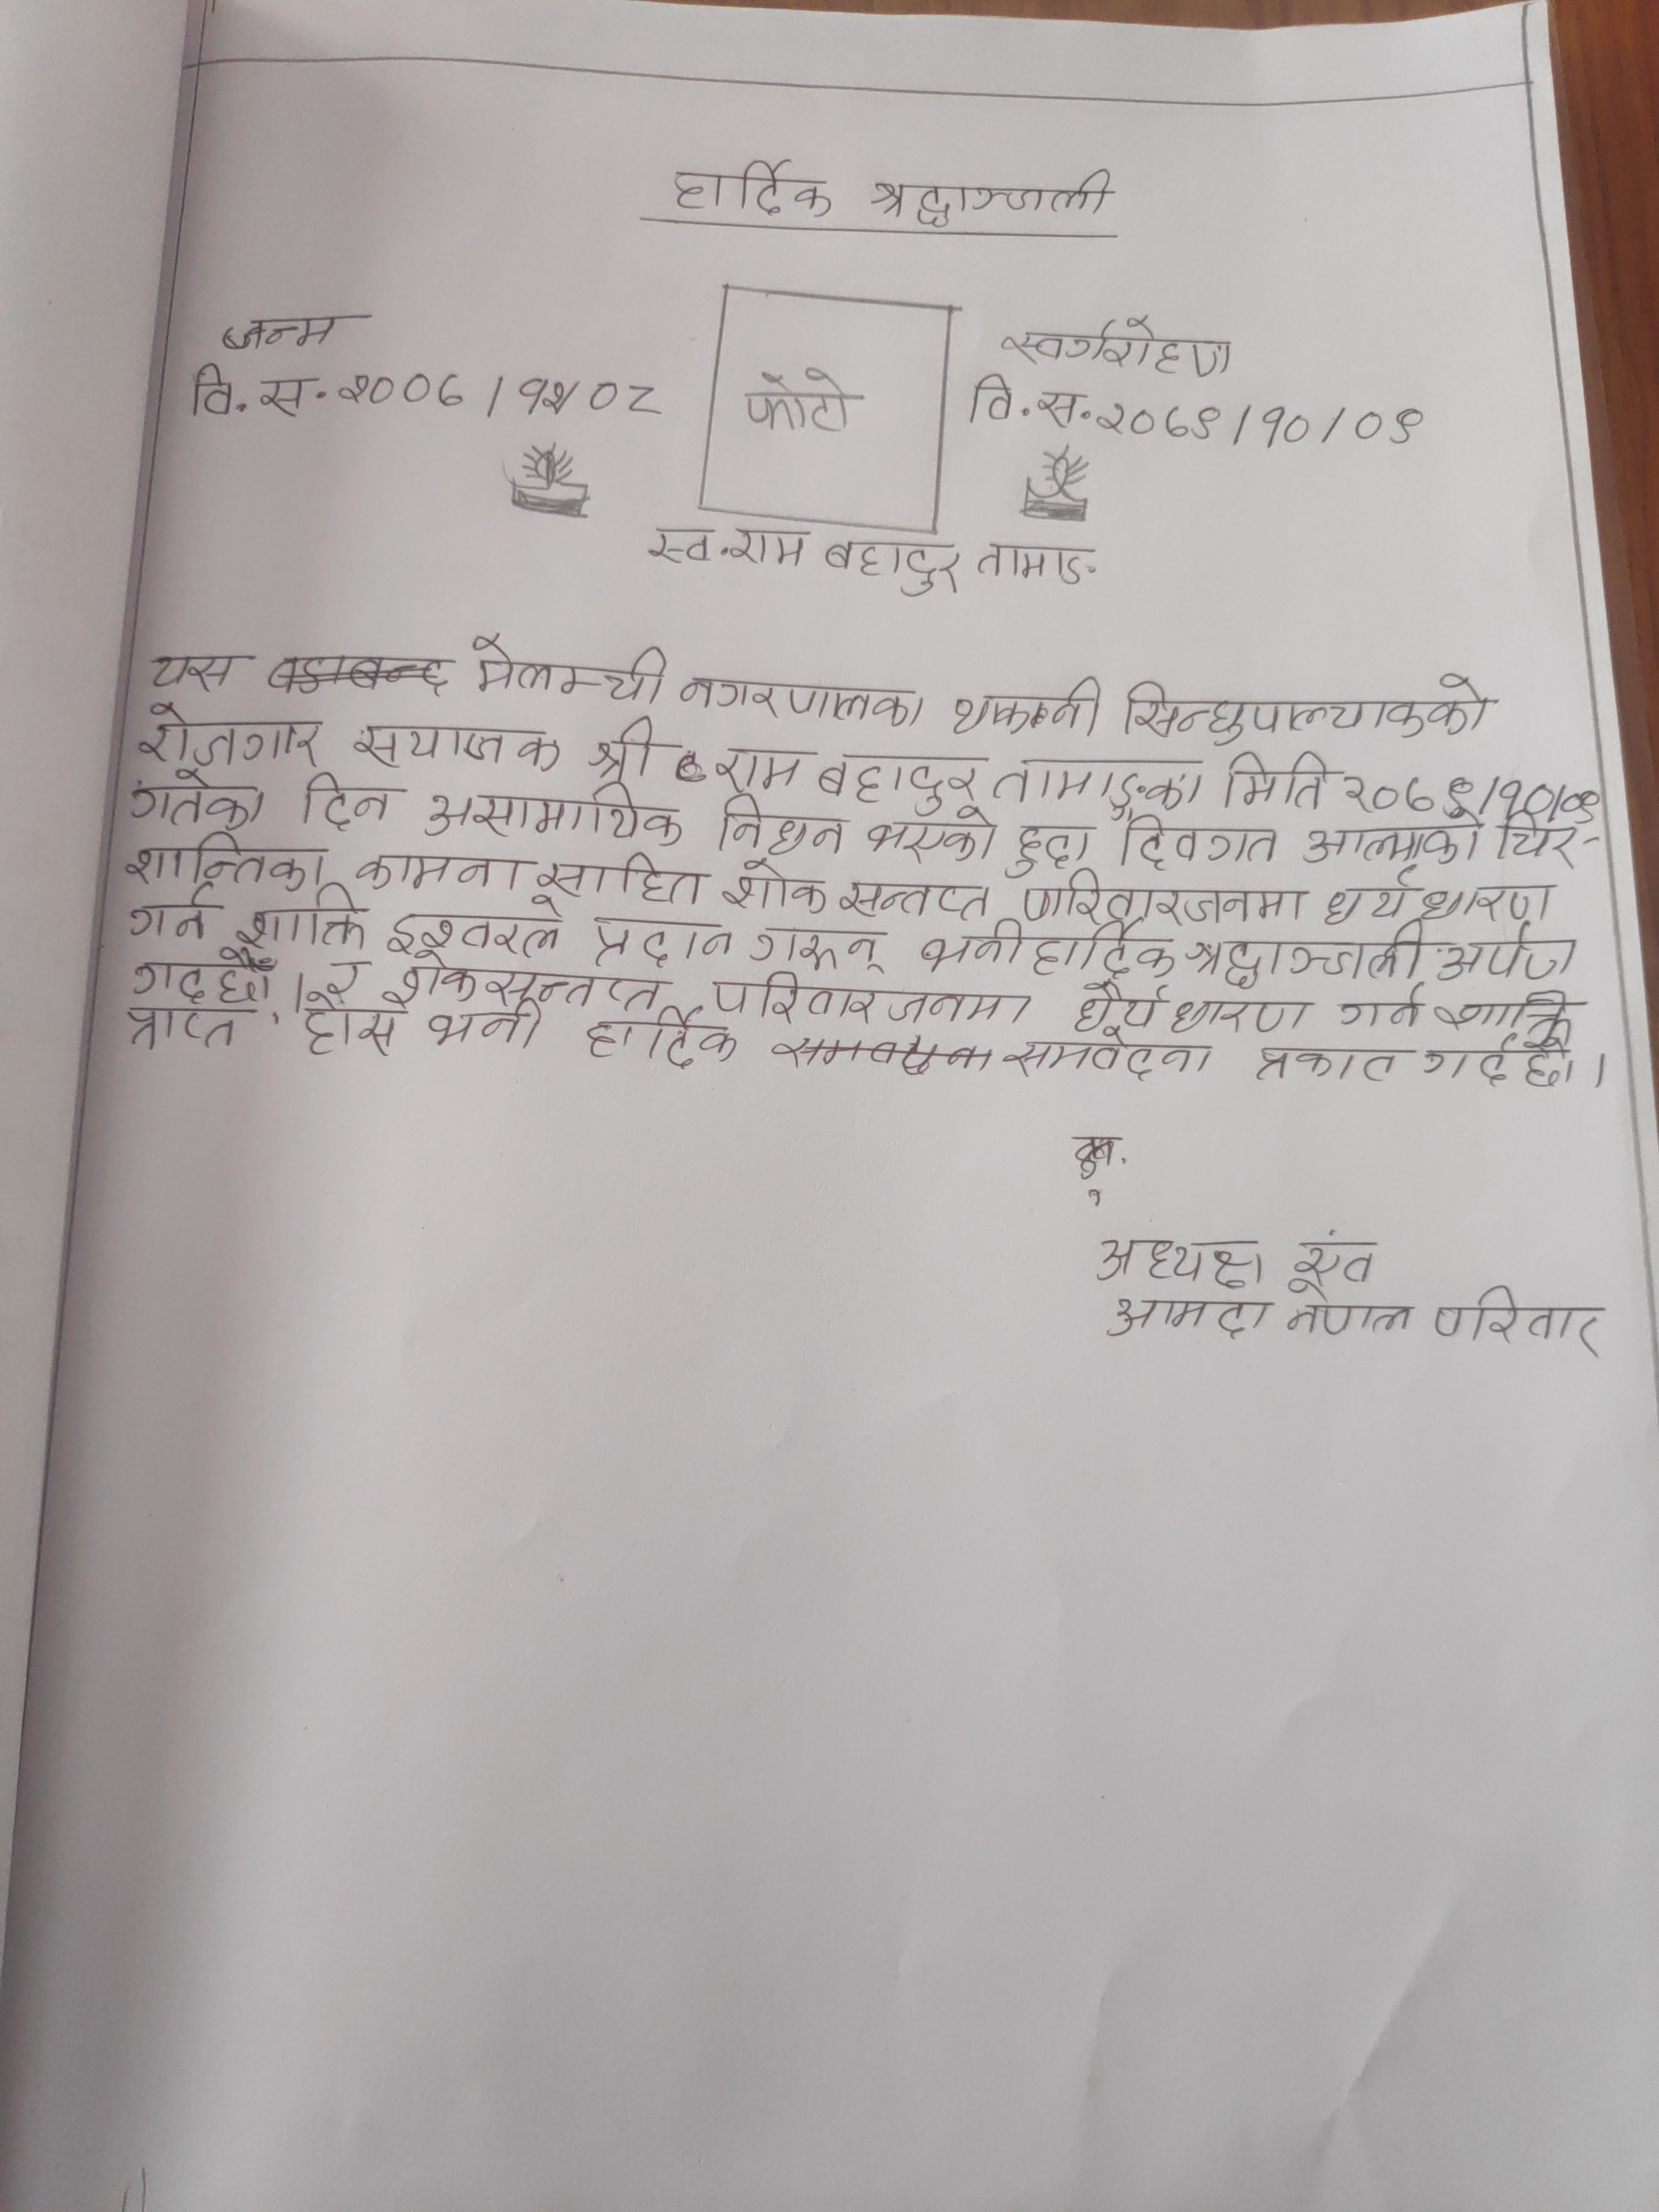 हार्दिक श्रद्धाञ्जली
जन्म
वि.स.२००६/१२/०८
फोटो
स्वर्गरोहण
वि.स.२०७९/१०/०९
स्व.राम बहादुर तामाङ
यस मेलम्ची नगरपालका थाकनी सिन्धुपाल्चाकको
रोजगार सयाजक श्री राम बहादुर तामाङका मिति २०७९/१०/०९
गतेका दिन असामायिक निधन भएको हुदा दिवगत आत्माको चिर-
शान्तिका कामना साहित शोक सन्तप्त परिवारजनमा धर्य धारण
गर्न शाक्ति इश्वरले प्रदान गरून् भनी हार्दिक श्रद्धाञ्जली अर्पण
गदछौं । र शोकसन्तप्त परिवारजनमा धैर्य धारण गर्न शाक्ति
प्राप्त होस भनी हार्दिक समवेदना प्रकाट गर्दछौ।
अध्यक्ष एंव
आमदा नेपाल परिवार